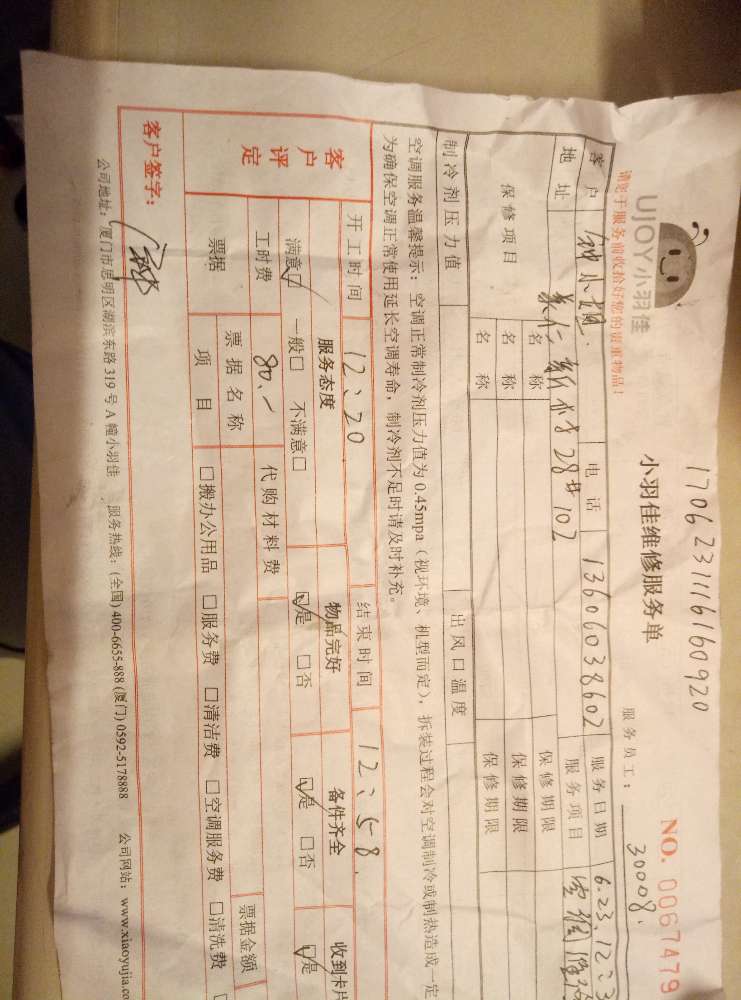 17062311161​60920
UJOY小羽佳
小羽佳维修服务单
NO. 0067479
请您于服务前收拾好您的贵重物品！
服务员工： 30008.
客户 钟小姐. 电话 13606038602 服务日期 6.23.12:3
地址 28#102 服务项目 空调
保修项目 名称 保修期限
名称 保修期限
名称 保修期限
制冷剂压力值 出风口温度
空调服务温馨提示：空调正常制冷剂压力值为 0.45mpa（视环境、机型而定），拆装过程会对空调制冷或制热造成一定
为确保空调正常使用延长空调寿命，制冷剂不足时请及时补充。
开工时间 12:20 结束时间 12:58.
客户评定 服务态度 物品完好 备件齐全 收到卡片
满意☑ 一般□ 不满意□ ☑是 □否 ☑是 □否 ☑是
工时费 80.- 代购材料费
票据 票据名称 票据金额
项目 □搬办公用品 □服务费 □清洁费 □空调服务费 □清洗费
客户签字： 钟
公司地址：厦门市思明区湖滨东路 319 号 A 幢小羽佳 服务热线：(全国) 400-6655-888 (厦门) 0592-5178888 公司网站：www.xiaoyujia.co